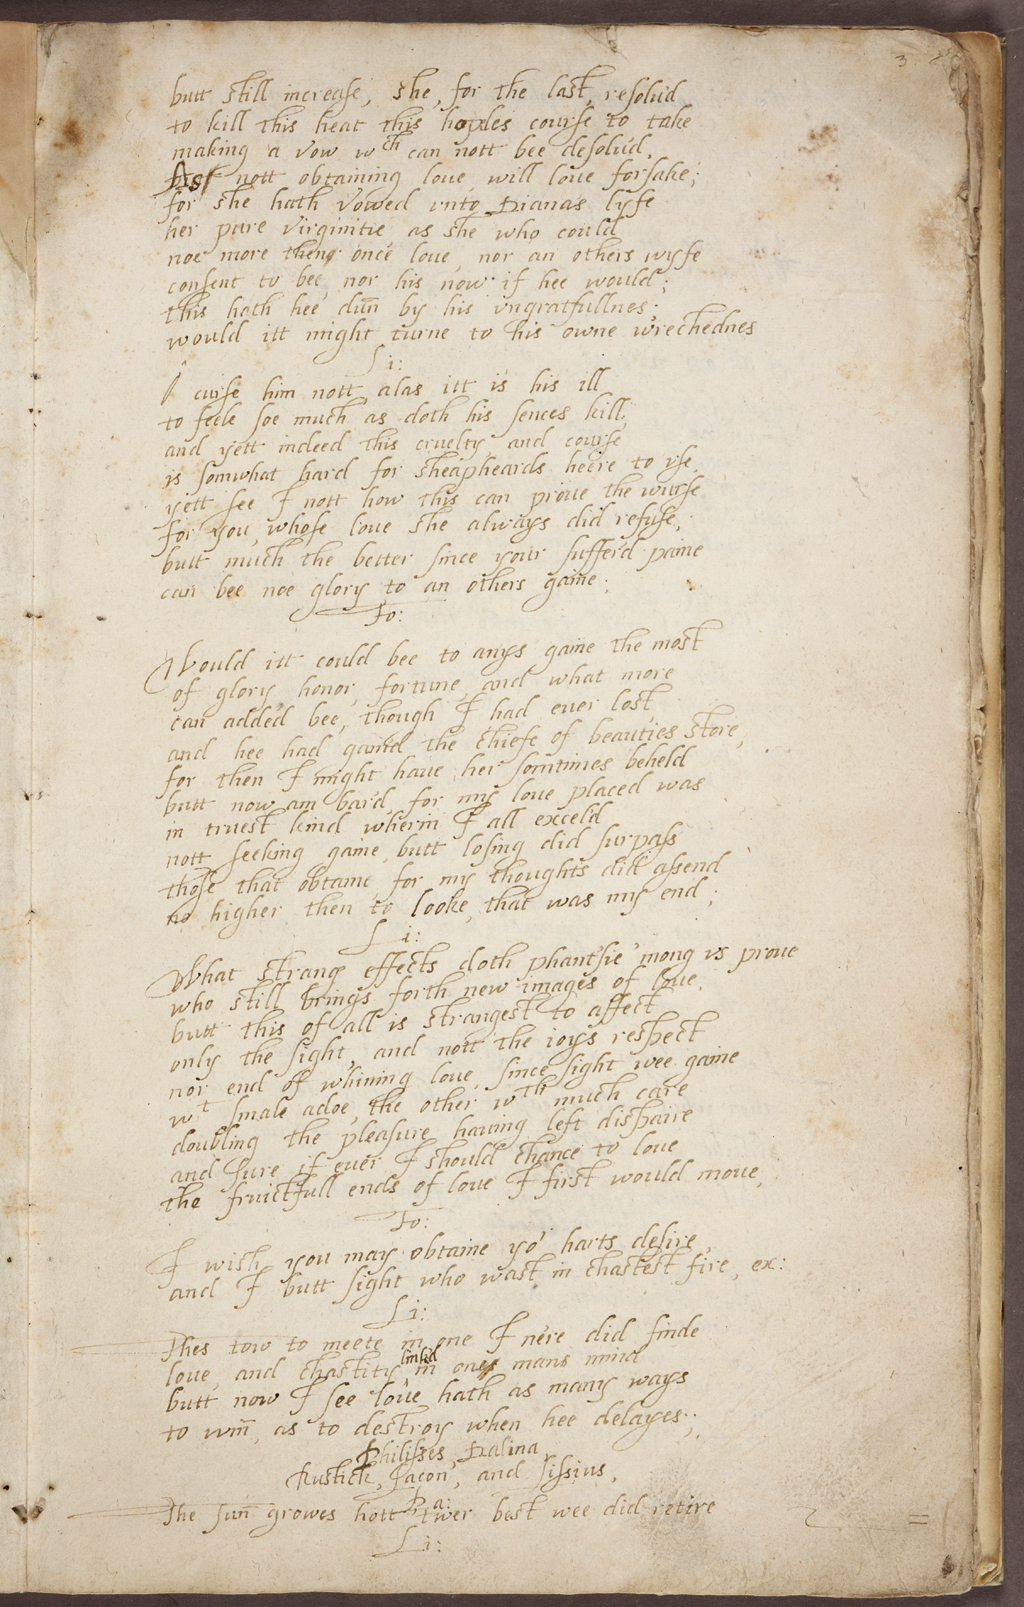 3
butt still increase, she, for the last, resolud
to kill this heat this hoples course to take
making a vow wch can nott bee desolud,
nott obtaining love, will love forsake;
for she hath vowed vnto Dianas lyfe
her pure virginitie as she who could
noe more then once love, nor an others wyfe
consent to bee, nor his now if hee would;
this hath hee dun̄ by his vngratfullnes;
would itt might turne to his owne wrechednes
Li:
I curse him nott, alas itt is his ill
to feele soe much, as doth his sences kill,
and yett indeed this cruelty, and course
is somwhat hard for sheapheards heere to vse,
yett see I nott how this can proue the wurse
for you, whose loue she always did refuse,
butt much the better since your sufferd paine
can bee noe glory to an others gaine;
Fo:
Would itt could bee to anys gaine the most
of glory, honor, fortune, and what more
can added bee, though I had euer lost
and hee had gaind the chiefe of beauties store,
for then I might haue her somtimes beheld
butt now am bard, for my loue placed was
in truest kind wherin I all exceld
nott seeking gaine, butt losing did surpass
those that obtaine for my thoughts did assend
no higher then to looke, that was my end;
Li:
What strang effects doth phantsie 'mong vs proue
who still brings forth new images of loue,
butt this of all is strangest to affect
only the sight, and nott the ioys respect
nor end of whining loue, since sight wee gaine
wt smale adoe, the other wth much care
doubling the pleasure having left dispaire
and sure if euer I should chance to loue
the fruictfull ends of loue I first would moue,
Fo:
I wish you may obtaine yor harts desire
and I butt sight who wast in chastest fire, ex:
Li:
Thes tow to meete in one I ne're did finde
loue, and chastity linkd in one mans mind
butt now I see loue hath as many ways
to win̄, as to destroy when hee delayes;
Philisses, Dalina,
Rustick, Lacon, and Sissius,
Da:
The sun̄ growes hott 'twer best wee did retire
Li: